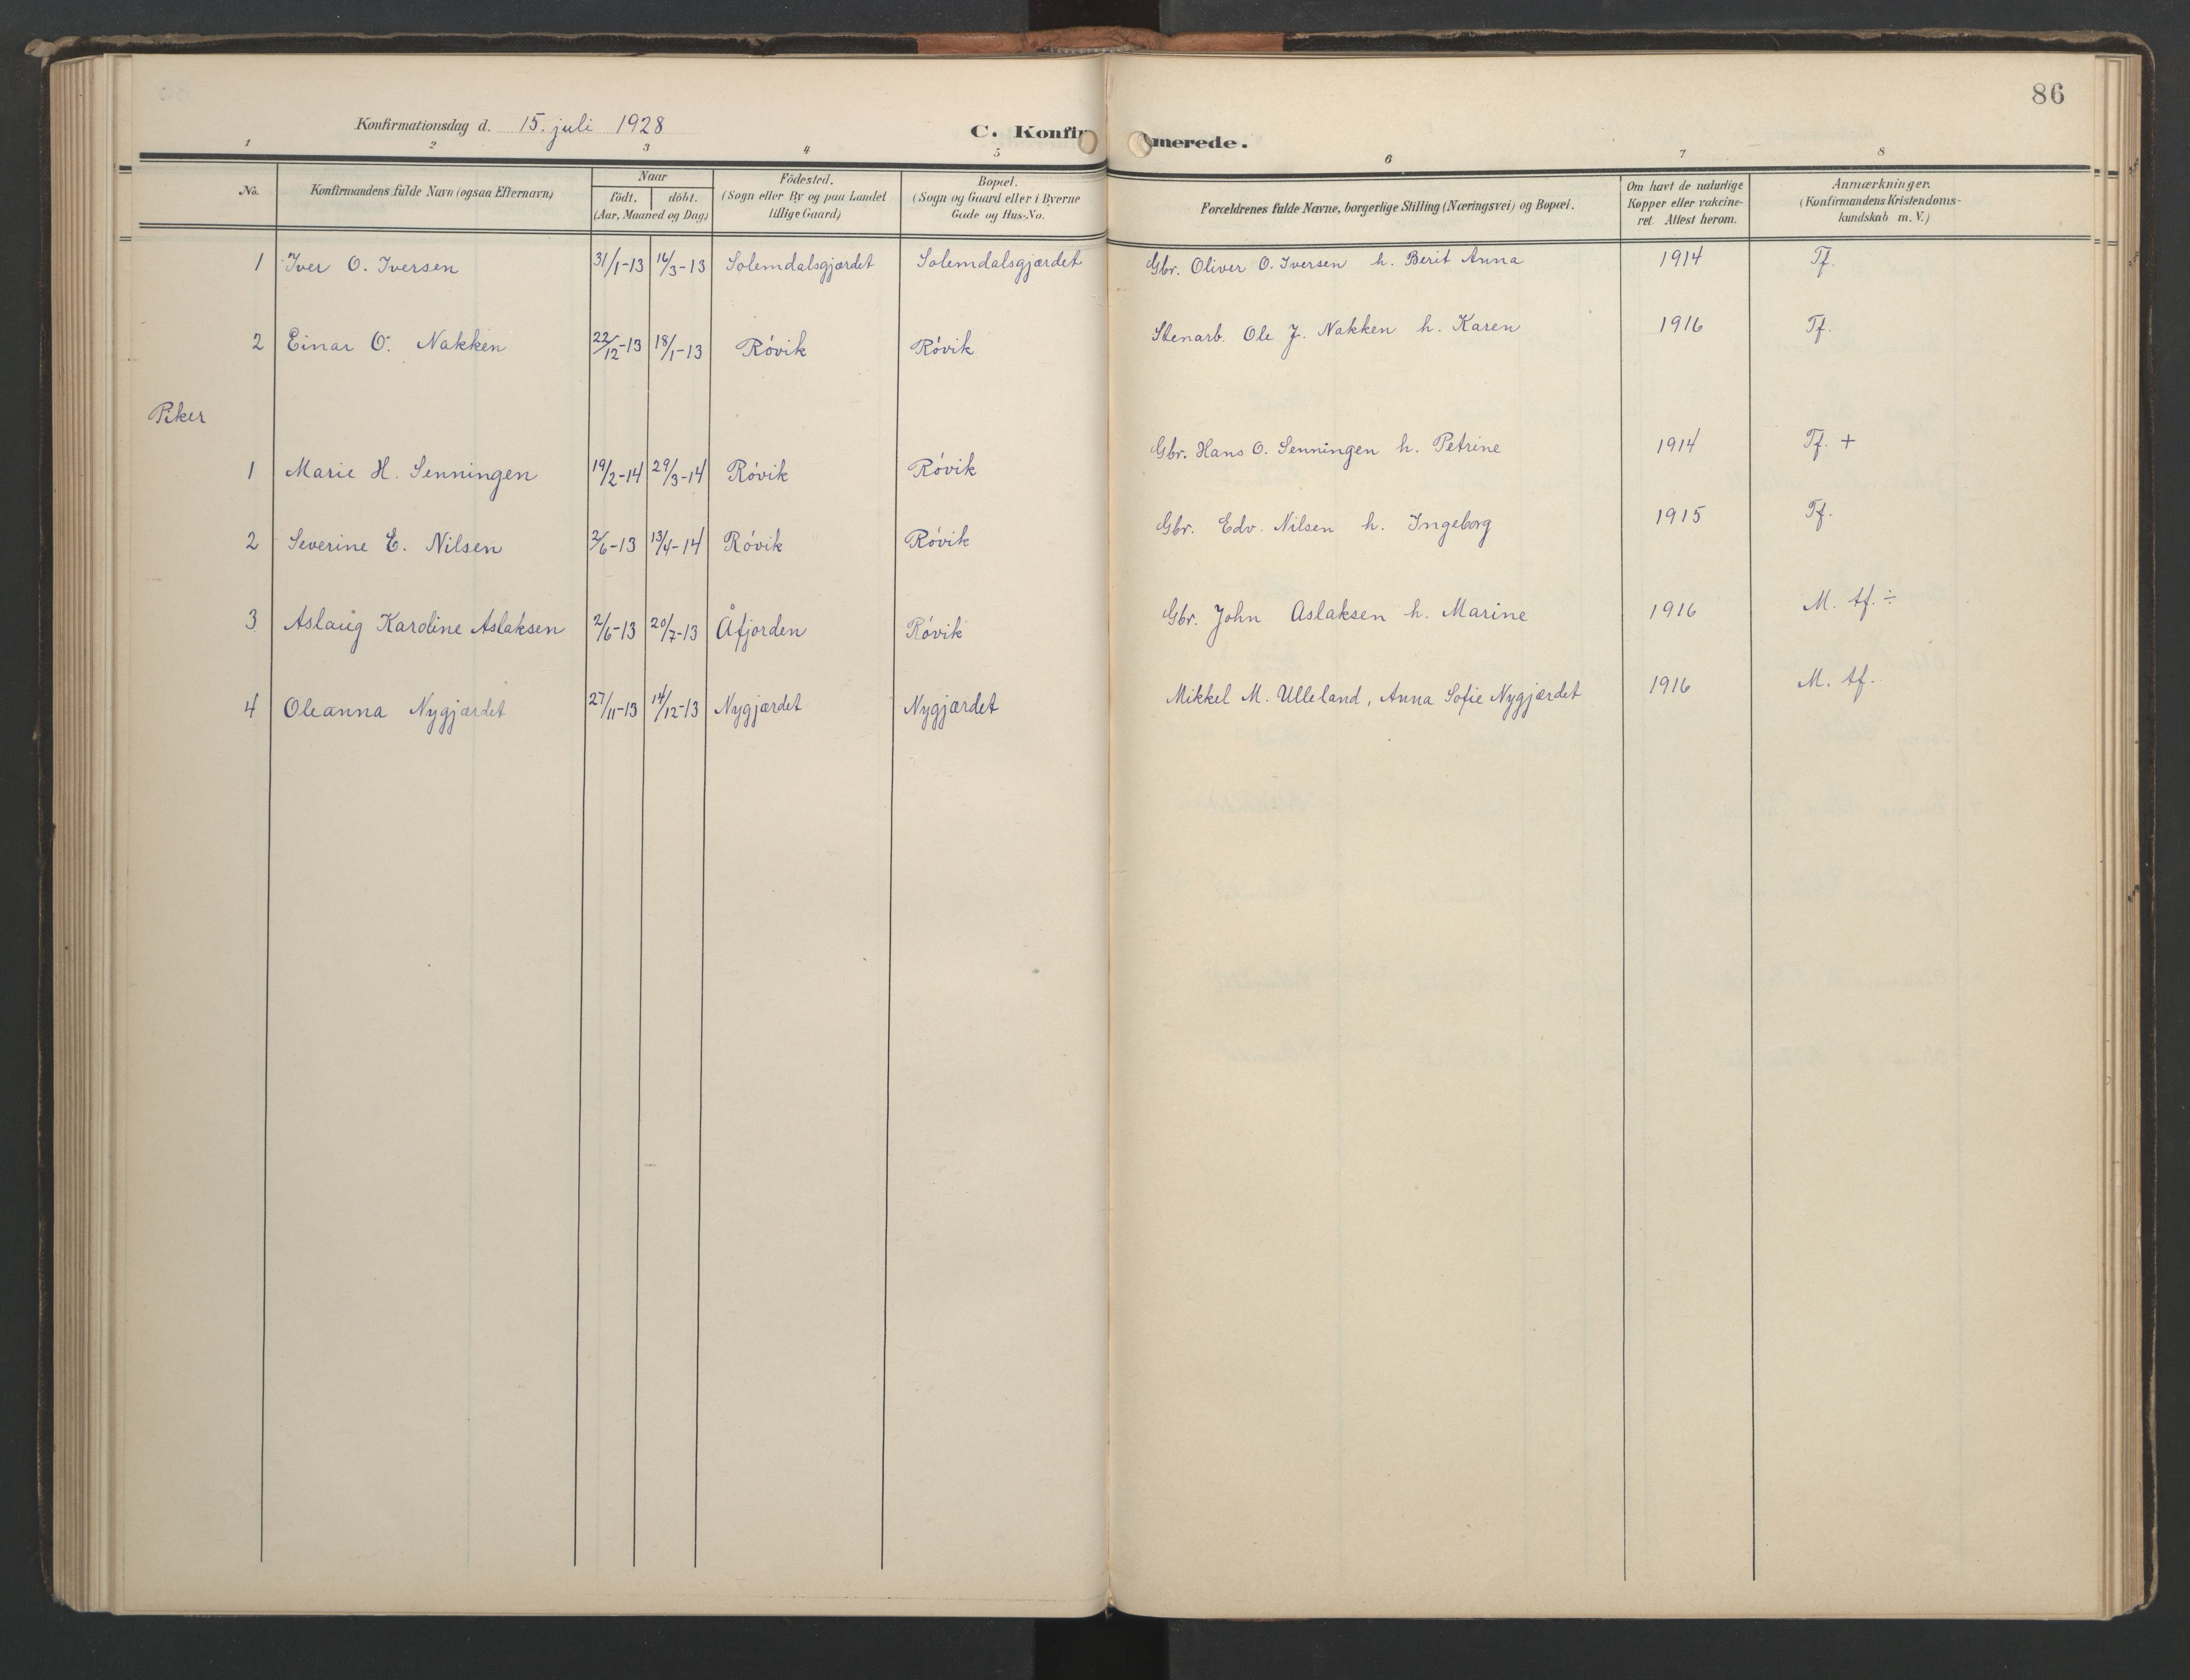 86
Konfirmationsdag d. 15. juli 1928
C. Konfirmerede.
1 2 3 4 5 6 7 8
No. | Konfirmandens fulde Navn (ogsaa Efternavn) | Naar födt. döbt. (Aar, Maaned og Dag) | Födested. (Sogn eller By og paa Landet tillige Gaard) | Bopæl. (Sogn og Gaard eller i Byerne Gade og Hus-No. | Forældrenes fulde Navne, borgerlige Stilling (Næringsvei) og Bopæl. | Om havt de naturlige Kopper eller vakcineret. Attest herom. | Anmærkninger. (Konfirmandens Kristendomskundskab m. V.)
1 | Iver O. Iversen | 31/1-13 | 16/3-13 | Solemdalsgjærdet | Solemdalsgjærdet | Gbr. Oliver O. Iversen h. Berit Anna | 1914 | Tf.
2 | Einar O. Nakken | 22/12-13 | 18/1-13 | Róvik | Róvik | Stenarb. Ole J. Nakken h. Karen | 1916 | Tf.
Piker
1 | Marie H. Senningen | 19/2-14 | 29/3-14 | Róvik | Róvik | Gbr. Hans O. Senningen h. Petrine | 1914 | Tf. +
2 | Severine E. Nilsen | 2/6-13 | 13/4-14 | Róvik | Róvik | Gbr. Edv. Nilsen h. Ingeborg | 1915 | Tf.
3 | Aslaug Karoline Aslaksen | 2/6-13 | 20/7-13 | Åfjorden | Róvik | Gbr. John Aslaksen h. Marine | 1916 | M. tf. ÷
4 | Oleanna Nygjærdet | 27/11-13 | 14/12-13 | Nygjærdet | Nygjærdet | Mikkel M. Ulleland, Anna Sofie Nygjærdet | 1916 | M. tf.